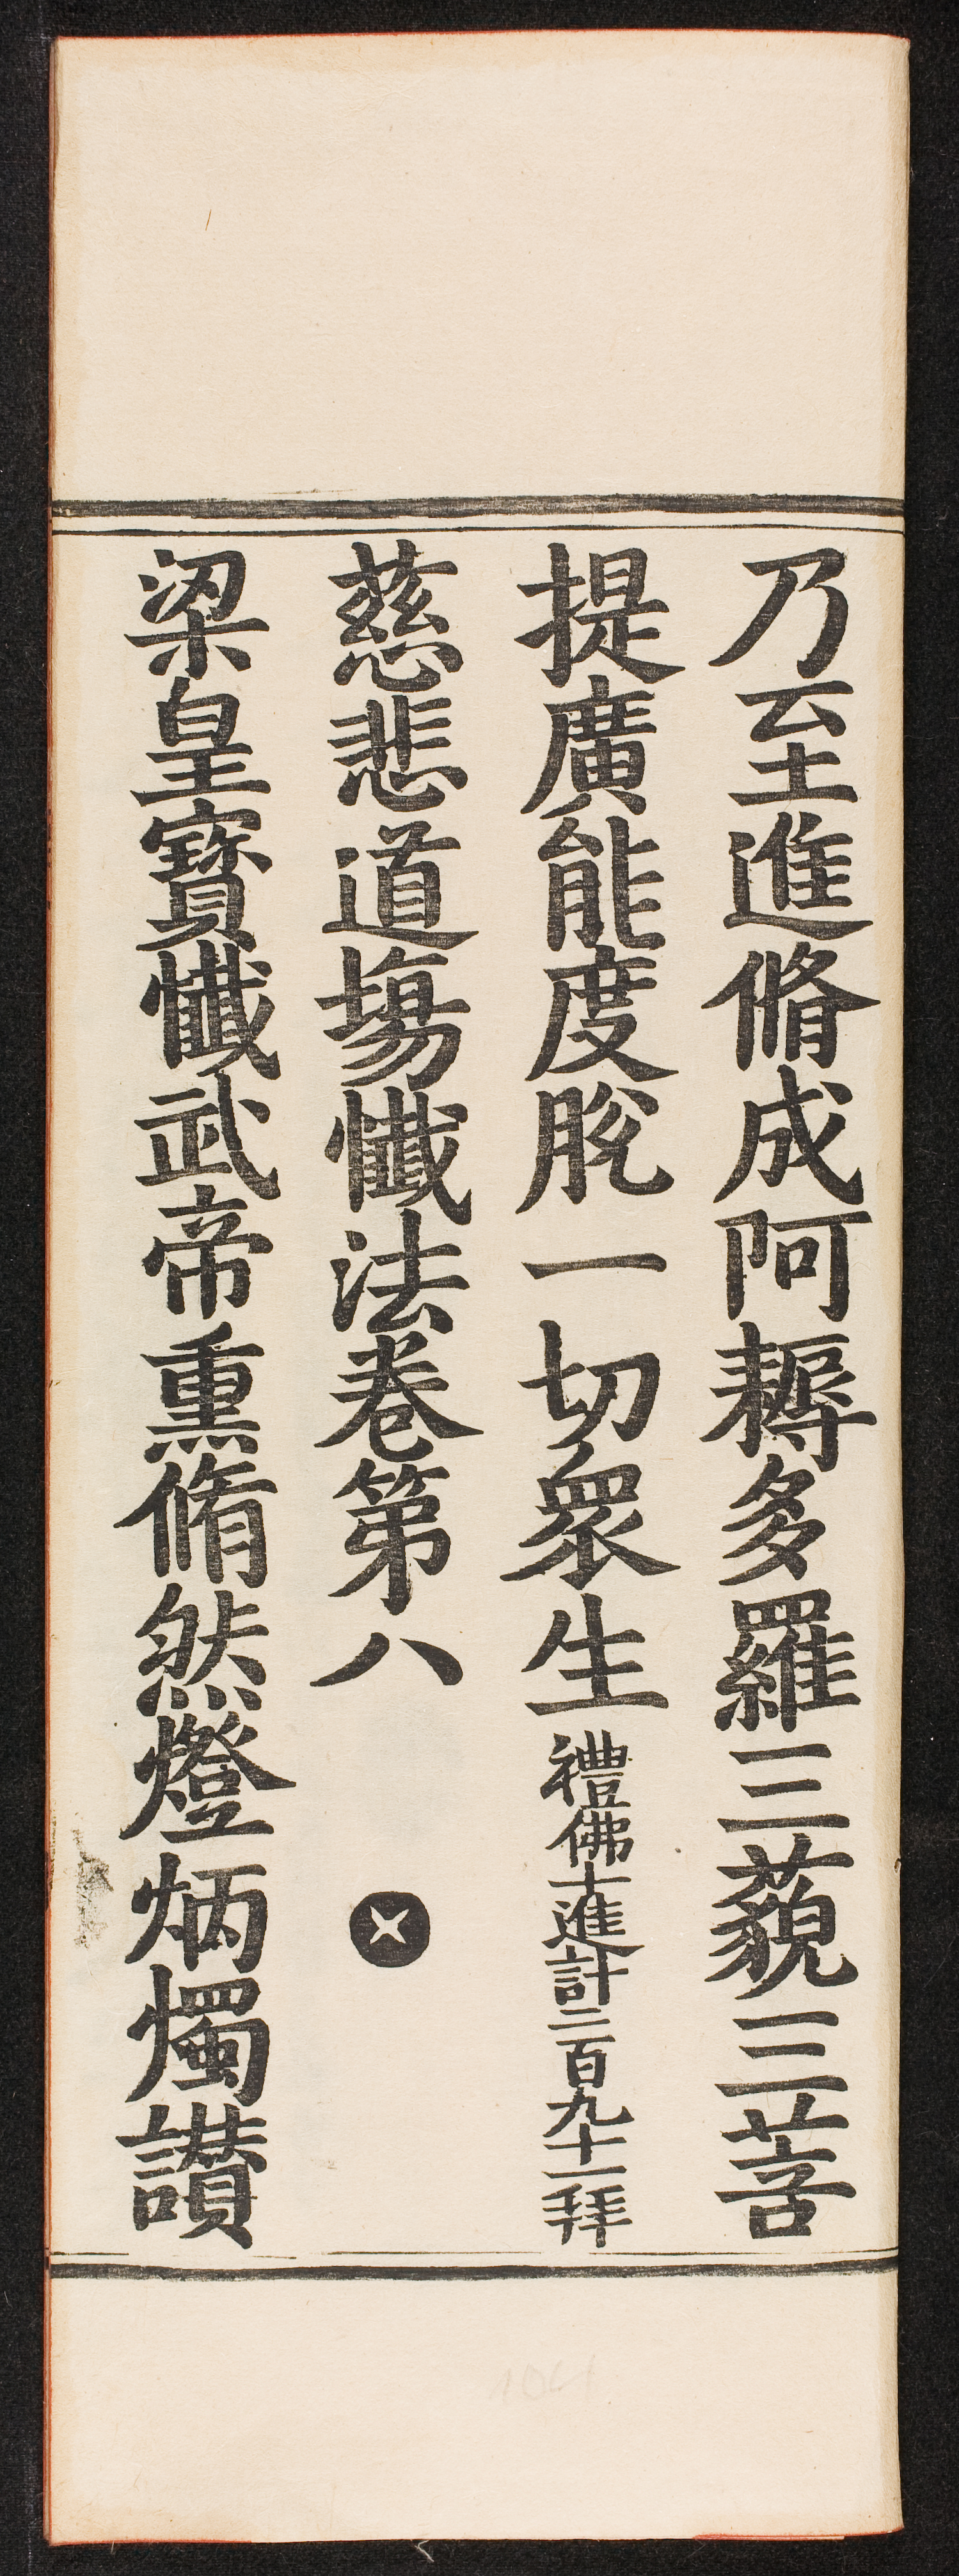 乃至進脩成阿耨多羅三藐三菩
提廣能度脫一切衆生禮佛十進計二百九十一拜
慈悲道場懺法卷第八
梁皇寶懺武帝熏脩然燈炳燭讃